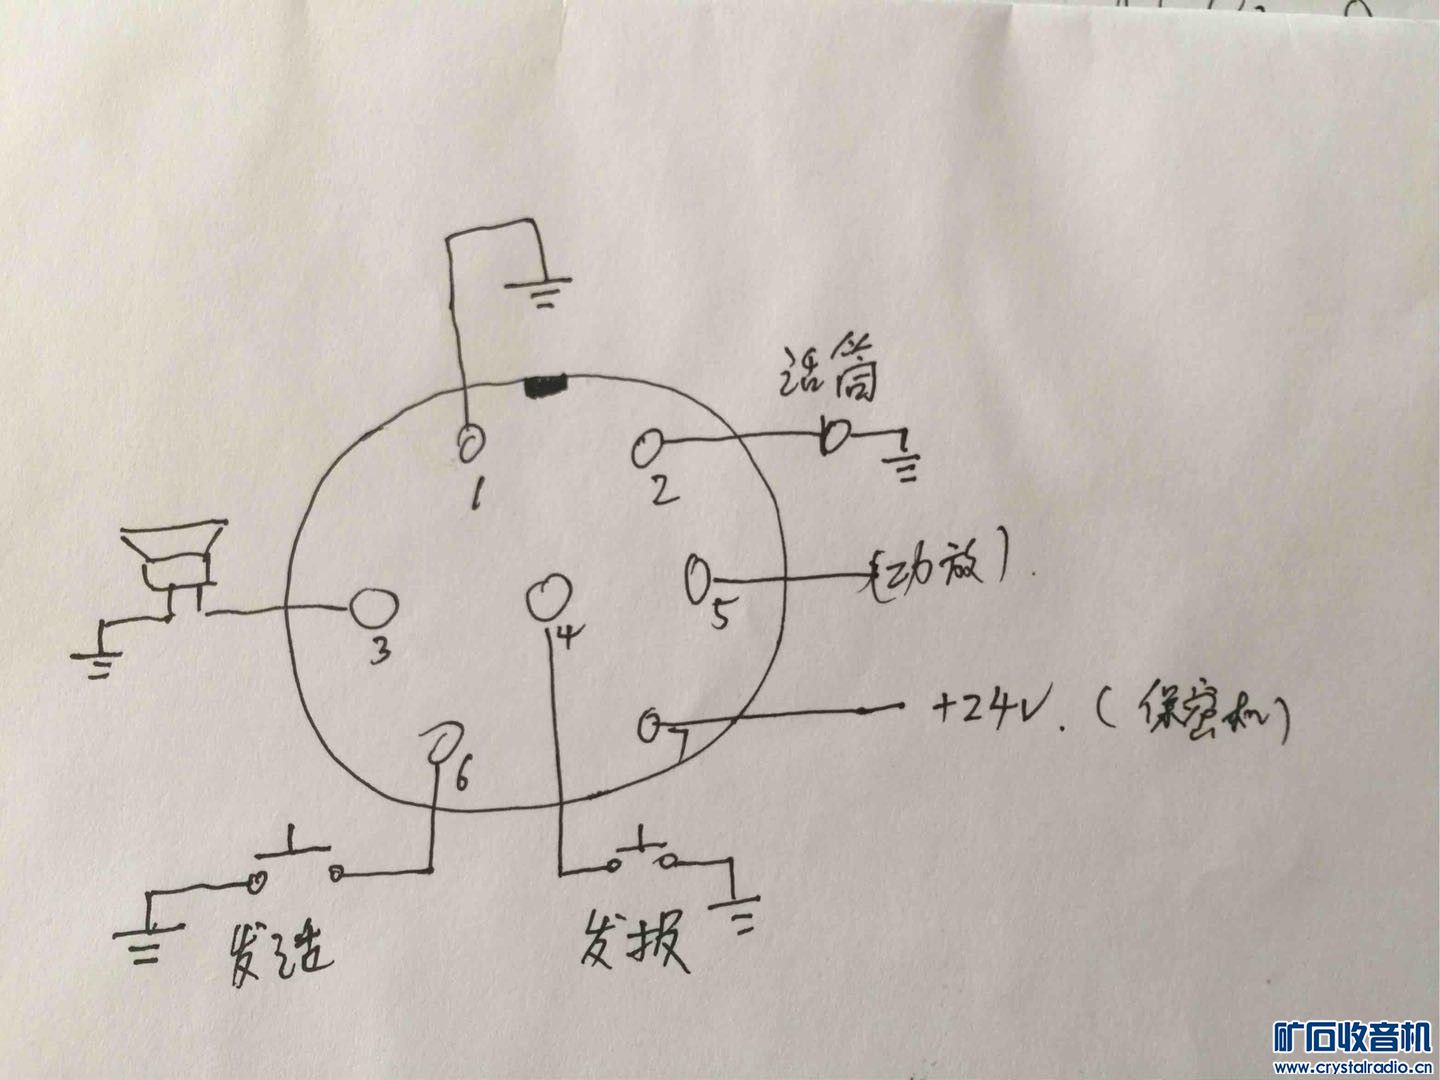 话筒
1
2
(功放)
5
3
4
+24V.(保密机)
7
6
发话
发报
矿石收音机
www.crystalradio.cn